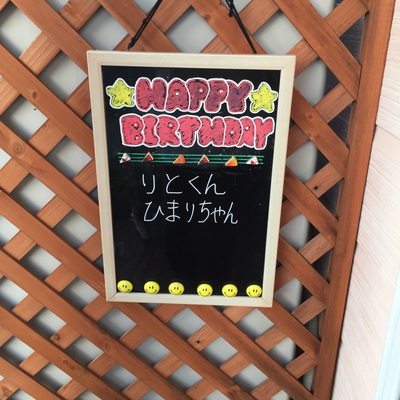 HAPPY
BIRTHDAY
りとくん
ひまりちゃん